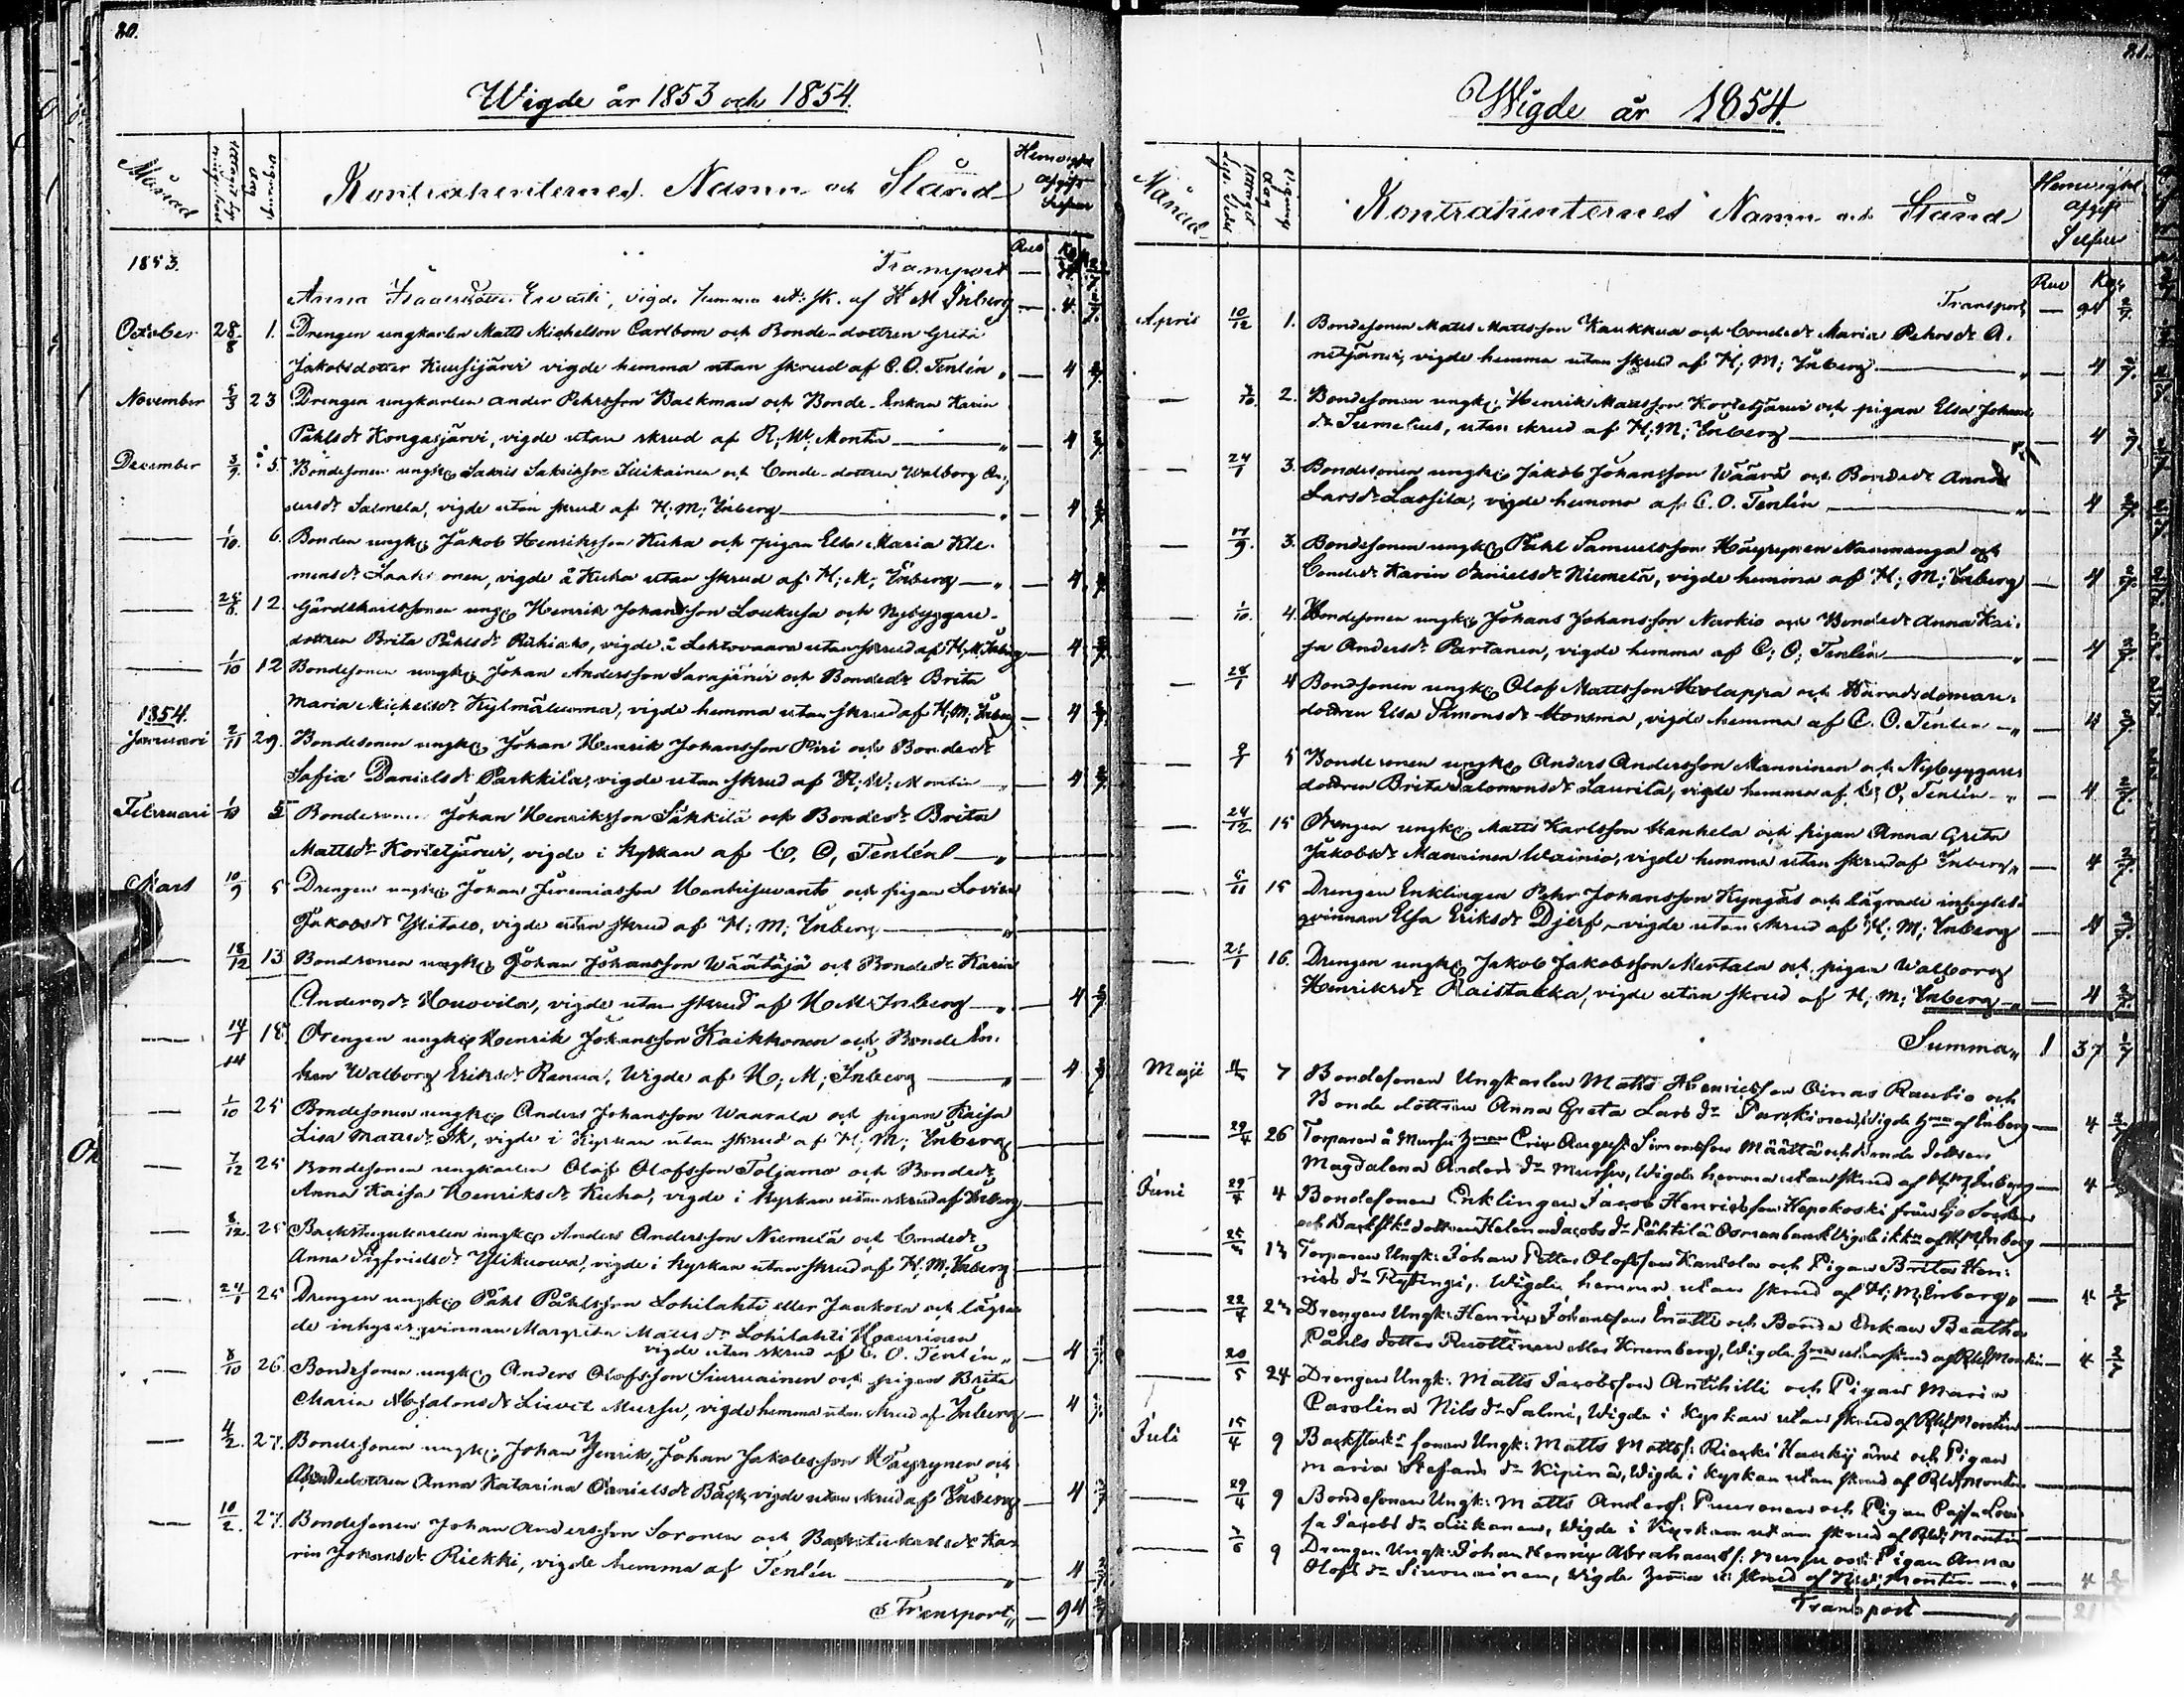 80.
Wigde år 1853 och 1854.
Månad
Vignings dag
Kontrahenternes Namn och Stånd
Hemvigsel afgift Silfver
Rub Kop
1853.
Transport
Anna Erwasti, vigde hemma utan sk. af H M Inberg 4 2/7
October 28/8 1. Drengen ungkarlen Matts Michelsson Carlbom och Bonde-dottren Greta
Jakobsdotter Kuusijärvi vigde hemma utan skrud af C. O. Tenlén 4 2/7
November 5/3 23 Drengen ungkarlen Ander Pehrsson Backman och Bonde-Enkan Karin
Påhlsdr Kongasjärvi, vigde utan skrud af R. W. Montin 4 2/7
December 3/9 5. Bondesonen ungk. Sakris Sakrisson och Bonde-dottren Walborg An-
dersdr Salmela, vigde utan skrud af H. M. Inberg 4 2/7
— 1/10. 6. Bonden ungk. Jakob Henriksson Kuha och pigan Elsa Maria Kle-
mensdr, vigde å Kuha utan skrud af H. M. Inberg 4 2/7
— 12. ungk. Henrik Johansson Loukusa och Nybyggare-
dottren Brita Påhlsdr, vigde å Lehtovaara utan skrud af H. M. Inberg 4 2/7
— 1/10 12 Bondesonen ungk. Johan Andersson Sarajärvi och Bondedr Brita
Maria Michelsdr Kylmäluoma, vigde hemma utan skrud af H. M. Inberg 4 2/7
1854.
Januari 2/11 29. Bondesonen ungk. Johan Henrik Johansson Piri och Bondedr
Sofia Danielsdr Parkkila, vigde utan skrud af R. W. Montin 4 2/7
Februari 1/10 5 Bondesonen Johan Henriksson Säkkilä och Bondedr Brita
Mattsdr Korvetjärvi, vigde i kyrkan af C. O. Tenlén
Mars 10/9 5 Drengen ungk. Johan Jeremiasson och pigan Lovisa
Jakobsdr Ylitalo, vigde utan skrud af H. M. Inberg
— 18/12 13 Bondesonen ungk. Johan Johansson Wäätäjä och Bondedr Karin
Andersdr, vigde utan skrud af H. M. Inberg 4 2/7
— 14/1 18. Drengen ungk. Henrik Johansson Kaikkonen och Bonde En-
14 kan Walborg Eriksdr Ranua, Wigde af H. M. Inberg 4 2/7
— 1/10 25 Bondesonen ungk. Anders Johansson Waarala och pigan Kaisa
Lisa Mattsdr Ik, vigde i kyrkan utan skrud af H. M. Inberg
— 7/12 25 Bondesonen ungkarlen Olof Olofsson Toljamo och Bondedr
Anna Kaisa Henriksdr Kuha, vigde i kyrkan utan skrud af Inberg
— 8/12 25 Backstugukarlen ungk. Anders Andersson Niemelä och Bondedr
Anna Sigfriedsdr Ylikuowa, vigde i kyrkan utan skrud af H. M. Inberg
— 24/1 25 Drengen ungk. Påhl Påhlsson Lohilahti eller Jaakola och lägra-
de inhyses qvinnan Margreta Mattsdr Lohilahti Haurinen
vigde utan skrud af C. O. Tenlén 4 2/7
— 8/10 26. Bondesonen ungk. Anders Olofsson Siuruainen och pigan Brita
Maria Absalonsdr Mursu, vigde hemma utan skrud af Inberg 4 2/7
— 4/2. 27. Bondesonen ungk. Johan Henrik, Johan Jakobsson Käyrynen och
Bondedottren Anna Katarina Danielsdr Bäck, vigde utan skrud af Inberg 4 2/7
— 10/2. 27. Bondesonen Johan Andersson Soronen och Backstukarlsdr Ka-
rin Johansdr Riekki, vigde hemma af Tenlén 4 2/7
Transport 94 2/7
81.
Wigde år 1854.
Månad
Vigning dag
Kontrahenternes Namn och Stånd
Hemvigsel afgift Silfver
Rub Kop
Transport 94 2/7
April 10/12 1. Bondesonen Matts Mattsson Kaukkua och Bondedr Maria Pehrsdr A-
netjärvi, vigde hemma utan skrud af H. M. Inberg 4 2/7
— 2. Bondesonen ungk. Henrik Mattsson Korvetjärvi och pigan Elsa Johans-
dr Tumelius, utan skrud af H. M. Inberg 4 2/7
— 24/1 3. Bondesonen ungk. Jakob Johansson Wäärä och Bondedr Anna
Larsdr Lassila, vigde hemma af C. O. Tenlén 4 2/7
— 17/9. 3. Bondesonen ungk. Påhl Samuelsson Käyrynen Naamanga och
Bondedr Karin Danielsdr Niemelä, vigde hemma af H. M. Inberg 4 2/7
— 1/10. 4. Bondesonen ungk. Johans Johansson Narkio och Bondedr Anna Kai-
sa Andersdr Partanen, vigde hemma af C. O. Tenlén 4 2/7
— 28/1 4 Bondsonen ungk. Olof Mattsson Holappa och Häradsdomare-
dottren Elsa Simonsdr, vigde hemma af C. O. Tenlén 4 2/7
— 9/7 5 Bondesonen ungk. Anders Andersson Manninen och Nybyggare-
dottren Brita Salomonsdr Laurila, vigde hemma af C. O. Tenlén 4 2/7
— 24/12 15 Drengen ungk. Matts Karlsson Hankela och pigan Anna Greta
Jakobsdr Manninen Wainio, vigde hemma utan skrud af Inberg 4 2/7
— 5/11 15 Drengen Enklingen Pehr Johansson Kyngäs och lägrade inhyses
qvinnan Elsa Eriksdr Djerf, vigde utan skrud af H. M. Inberg 4 2/7
— 21/1 16. Drengen ungk. Jakob Jakobsson Mertala och pigan Walborg
Henriksdr Raistakka, vigde utan skrud af H. M. Inberg 4 2/7
Summa 1 37 1/7
Maji 7 Bondesonen Ungkarlen Matts Henricsson Oinas Raubio och
Bonde dottren Anna Greta Lars dr, Wigde hemma af Inberg 4 2/7
— 29/4 26 Torparen å Mursu Eric August Simonsson Määttä och Bonde dottren
Magdalena Anders dr Mursu, Wigde hemma utan skrud af H. M. Inberg 4 2/7
Juni 29/4 4 Bondesonen Enklingen Jacob Henricsson Hepokoski från Ijo Socken
och dottren Helena Jacobs dr Pähtilä af H. M. Inberg
— 12 Torparen Ungk: Johan Petter Olofsson Karsola och Pigan Brita Hen-
rics dr, Wigde hemma utan skrud af H. M. Inberg 4 2/7
— 22/4 Drengen Ungk: Henric Johansson och Bonde Enkan Beatha
Påhls dotter Ruottinen eller Krumberg, Wigde utan skrud af R. W. Montin 4 2/7
— 20/5 24 Drengen Ungk: Matts Jacobsson Anttihilli och Pigan Maria
Carolina Nils dr Salmi, Wigde i Kyrkan utan skrud af R. W. Montin
Juli 15/4 9 sonen Ungk: Matts Matts: och Pigan
Maria Stefans dr Kipinä, Wigde i Kyrkan utan skrud af R. W. Montin
— 29/4 9 Bondesonen Ungk: Matts Anders: Puuronen och Pigan Caisa Lovi-
sa Jacobs dr Liikanen, Wigde i Kyrkan utan skrud af R. W. Montin
— 9 Drengen Ungk: Johan Henric Abrahams: Mursu och Pigan Anna
Olofs dr Siuruainen, Wigde skrud af R. W. Montin 4 2/7
Transport 21